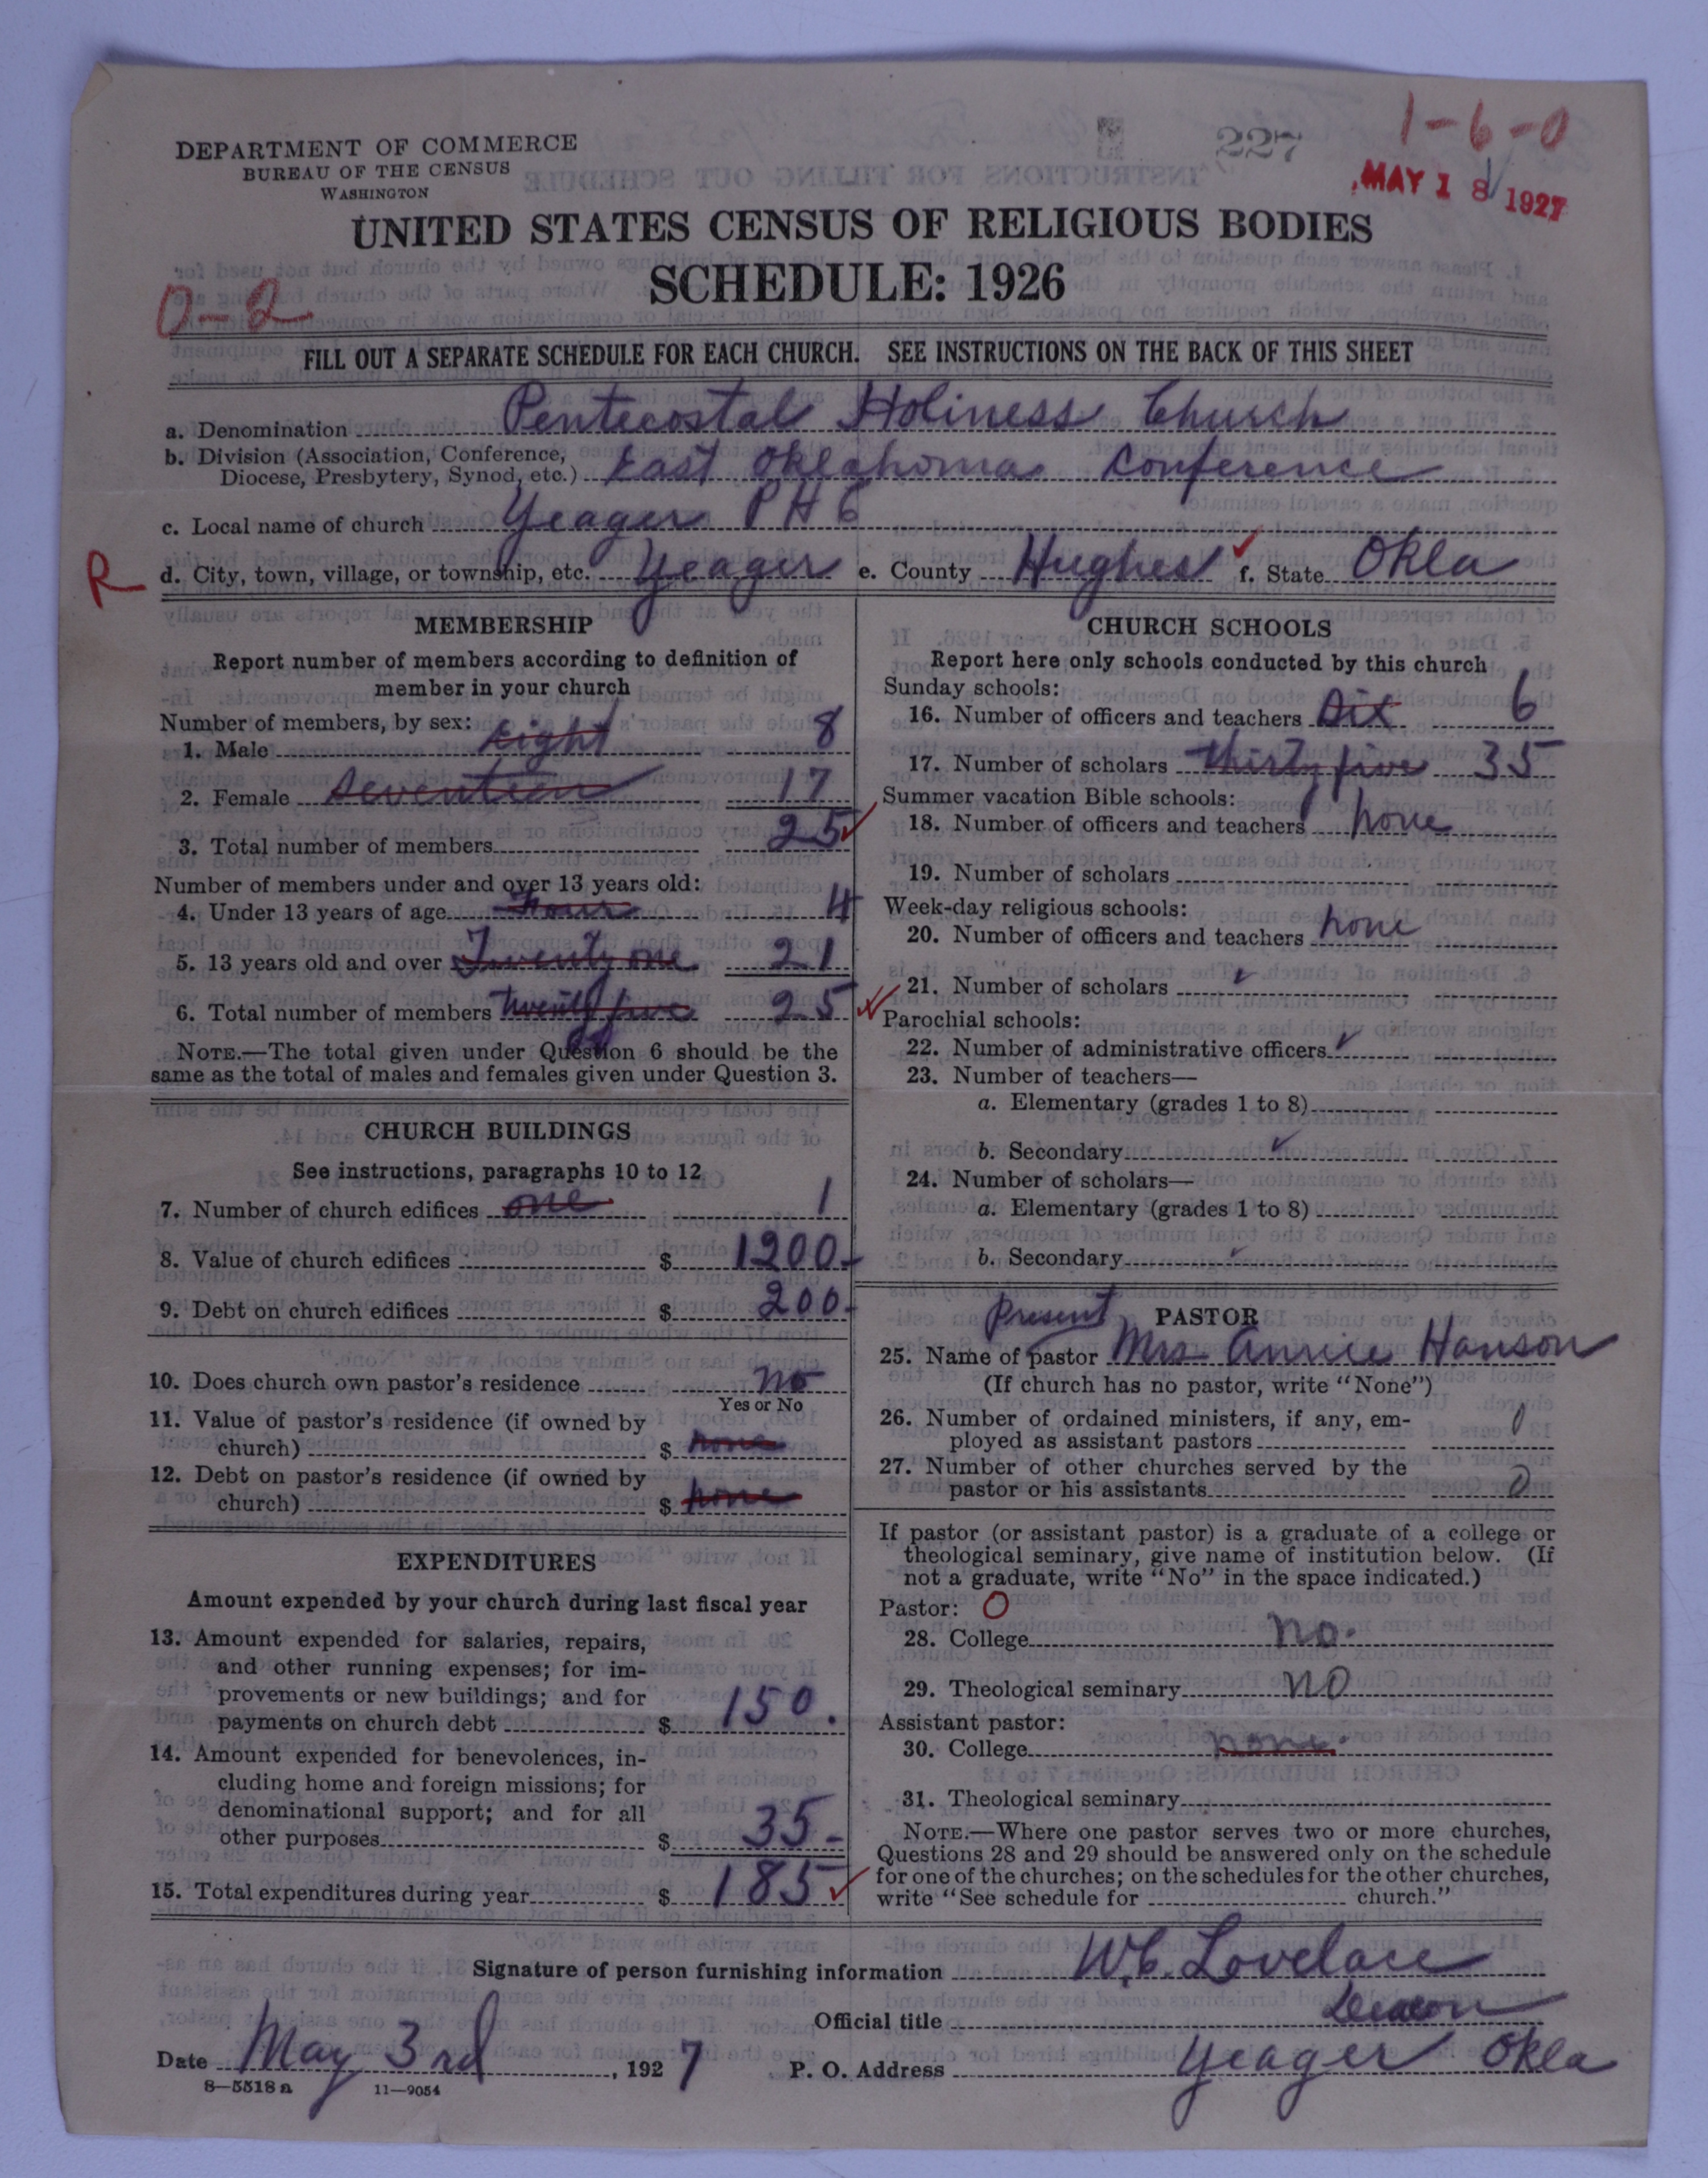 1-6-0
227
MAY 18 1927
DEPARTMENT OF COMMERCE
BUREAU OF THE CENSUS
WASHINGTON
UNITED STATES CENSUS OF RELIGIOUS BODIES
SCHEDULE: 1926
0-2
FILL OUT A SEPARATE SCHEDULE FOR EACH CHURCH. SEE INSTRUCTIONS ON THE BACK OF THIS SHEET
a. Denomination Pentecostal Holiness Church
b. Division (Association, Conference,
Diocese, Presbytery, Synod, etc.) East Oklahoma Conference
c. Local name of church Yeager P H C
R d. City, town, village, or township, etc. Yeager e. County Hughes f. State Okla
MEMBERSHIP
Report number of members according to definition of
member in your church
Number of members, by sex:
1. Male eight 8
2. Female seventeen 17
3. Total number of members 25
Number of members under and over 13 years old:
4. Under 13 years of age four 4
5. 13 years old and over Twenty one 21
6. Total number of members twenty five 25
NOTE.—The total given under Question 6 should be the
same as the total of males and females given under Question 3.
CHURCH BUILDINGS
See instructions, paragraphs 10 to 12
7. Number of church edifices one 1
8. Value of church edifices $ 1200-
9. Debt on church edifices $ 200-
10. Does church own pastor's residence no
Yes or No
11. Value of pastor's residence (if owned by
church) $ none
12. Debt on pastor's residence (if owned by
church) $ none
EXPENDITURES
Amount expended by your church during last fiscal year
13. Amount expended for salaries, repairs,
and other running expenses; for im-
provements or new buildings; and for
payments on church debt $ 150.
14. Amount expended for benevolences, in-
cluding home and foreign missions; for
denominational support; and for all
other purposes $ 35-
15. Total expenditures during year $ 185
CHURCH SCHOOLS
Report here only schools conducted by this church
Sunday schools:
16. Number of officers and teachers Six 6
17. Number of scholars thirty five 35
Summer vacation Bible schools:
18. Number of officers and teachers none
19. Number of scholars
Week-day religious schools:
20. Number of officers and teachers none
21. Number of scholars
Parochial schools:
22. Number of administrative officers
23. Number of teachers—
a. Elementary (grades 1 to 8)
b. Secondary
24. Number of scholars—
a. Elementary (grades 1 to 8)
b. Secondary
Present PASTOR
25. Name of pastor Mrs Annie Hanson
(If church has no pastor, write "None")
26. Number of ordained ministers, if any, em-
ployed as assistant pastors 0
27. Number of other churches served by the
pastor or his assistants 0
If pastor (or assistant pastor) is a graduate of a college or
theological seminary, give name of institution below. (If
not a graduate, write "No" in the space indicated.)
Pastor: O
28. College no.
29. Theological seminary NO
Assistant pastor:
30. College none.
31. Theological seminary
NOTE.—Where one pastor serves two or more churches,
Questions 28 and 29 should be answered only on the schedule
for one of the churches; on the schedules for the other churches,
write "See schedule for church."
Signature of person furnishing information W.C. Lovelace
Official title Deacon
Date May 3rd, 1927 P. O. Address Yeager Okla
8—5518a 11—9054